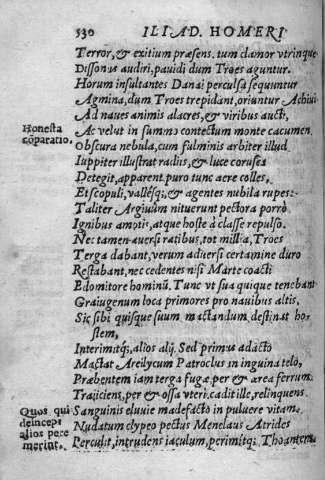 530 ILIAD. HOMERI
Terror, & exitium præsens. tum clamor vtrinque
Dissonus audiri, pauidi dum Troes aguntur.
Horum insultantes Danai perculsa sequuntur
Agmina, dum Troes trepidant, oriuntur Achiui
Ad naues animis alacres, & viribus aucti,
Honesta
cōparatio.
Ac velut in summo contectum monte cacumen
Obscura nebula, cum fulminis arbiter illud
Iuppiter illustrat radiis, & luce corusca
Detegit, apparent puro tunc aere colles,
Et scopuli, vallesq;, & agentes nubila rupes:
Taliter Argiuûm nituerunt pectora porrò
Ignibus amotis, atque hoste à classe repulso.
Nec tamen auersi ratibus, tot millia, Troes
Terga dabant, verum aduersi certamine duro
Restabant, nec cedentes nisi Marte coacti
Edomitore hominū. Tunc vt sua quique tenebant
Graiugenum loca primores pro nauibus altis,
Sic sibi quisque suum mactandum destinat hos
stem,
Interimitq;, alios alij. Sed primus adacto
Mactat Areilycum Patroclus in inguina telo,
Præbentem iam terga fugæ, per & ærea ferrum
Traiiciens, per & ossa viri. cadit ille, relinquens
Quos qui
deinceps
alios pere
merint.
Sanguinis eluuie madefacto in puluere vitam.
Nudatum clypeo pectus Menelaus Atrides
Perculit, intrudens iaculum, perimitq; Thoantem